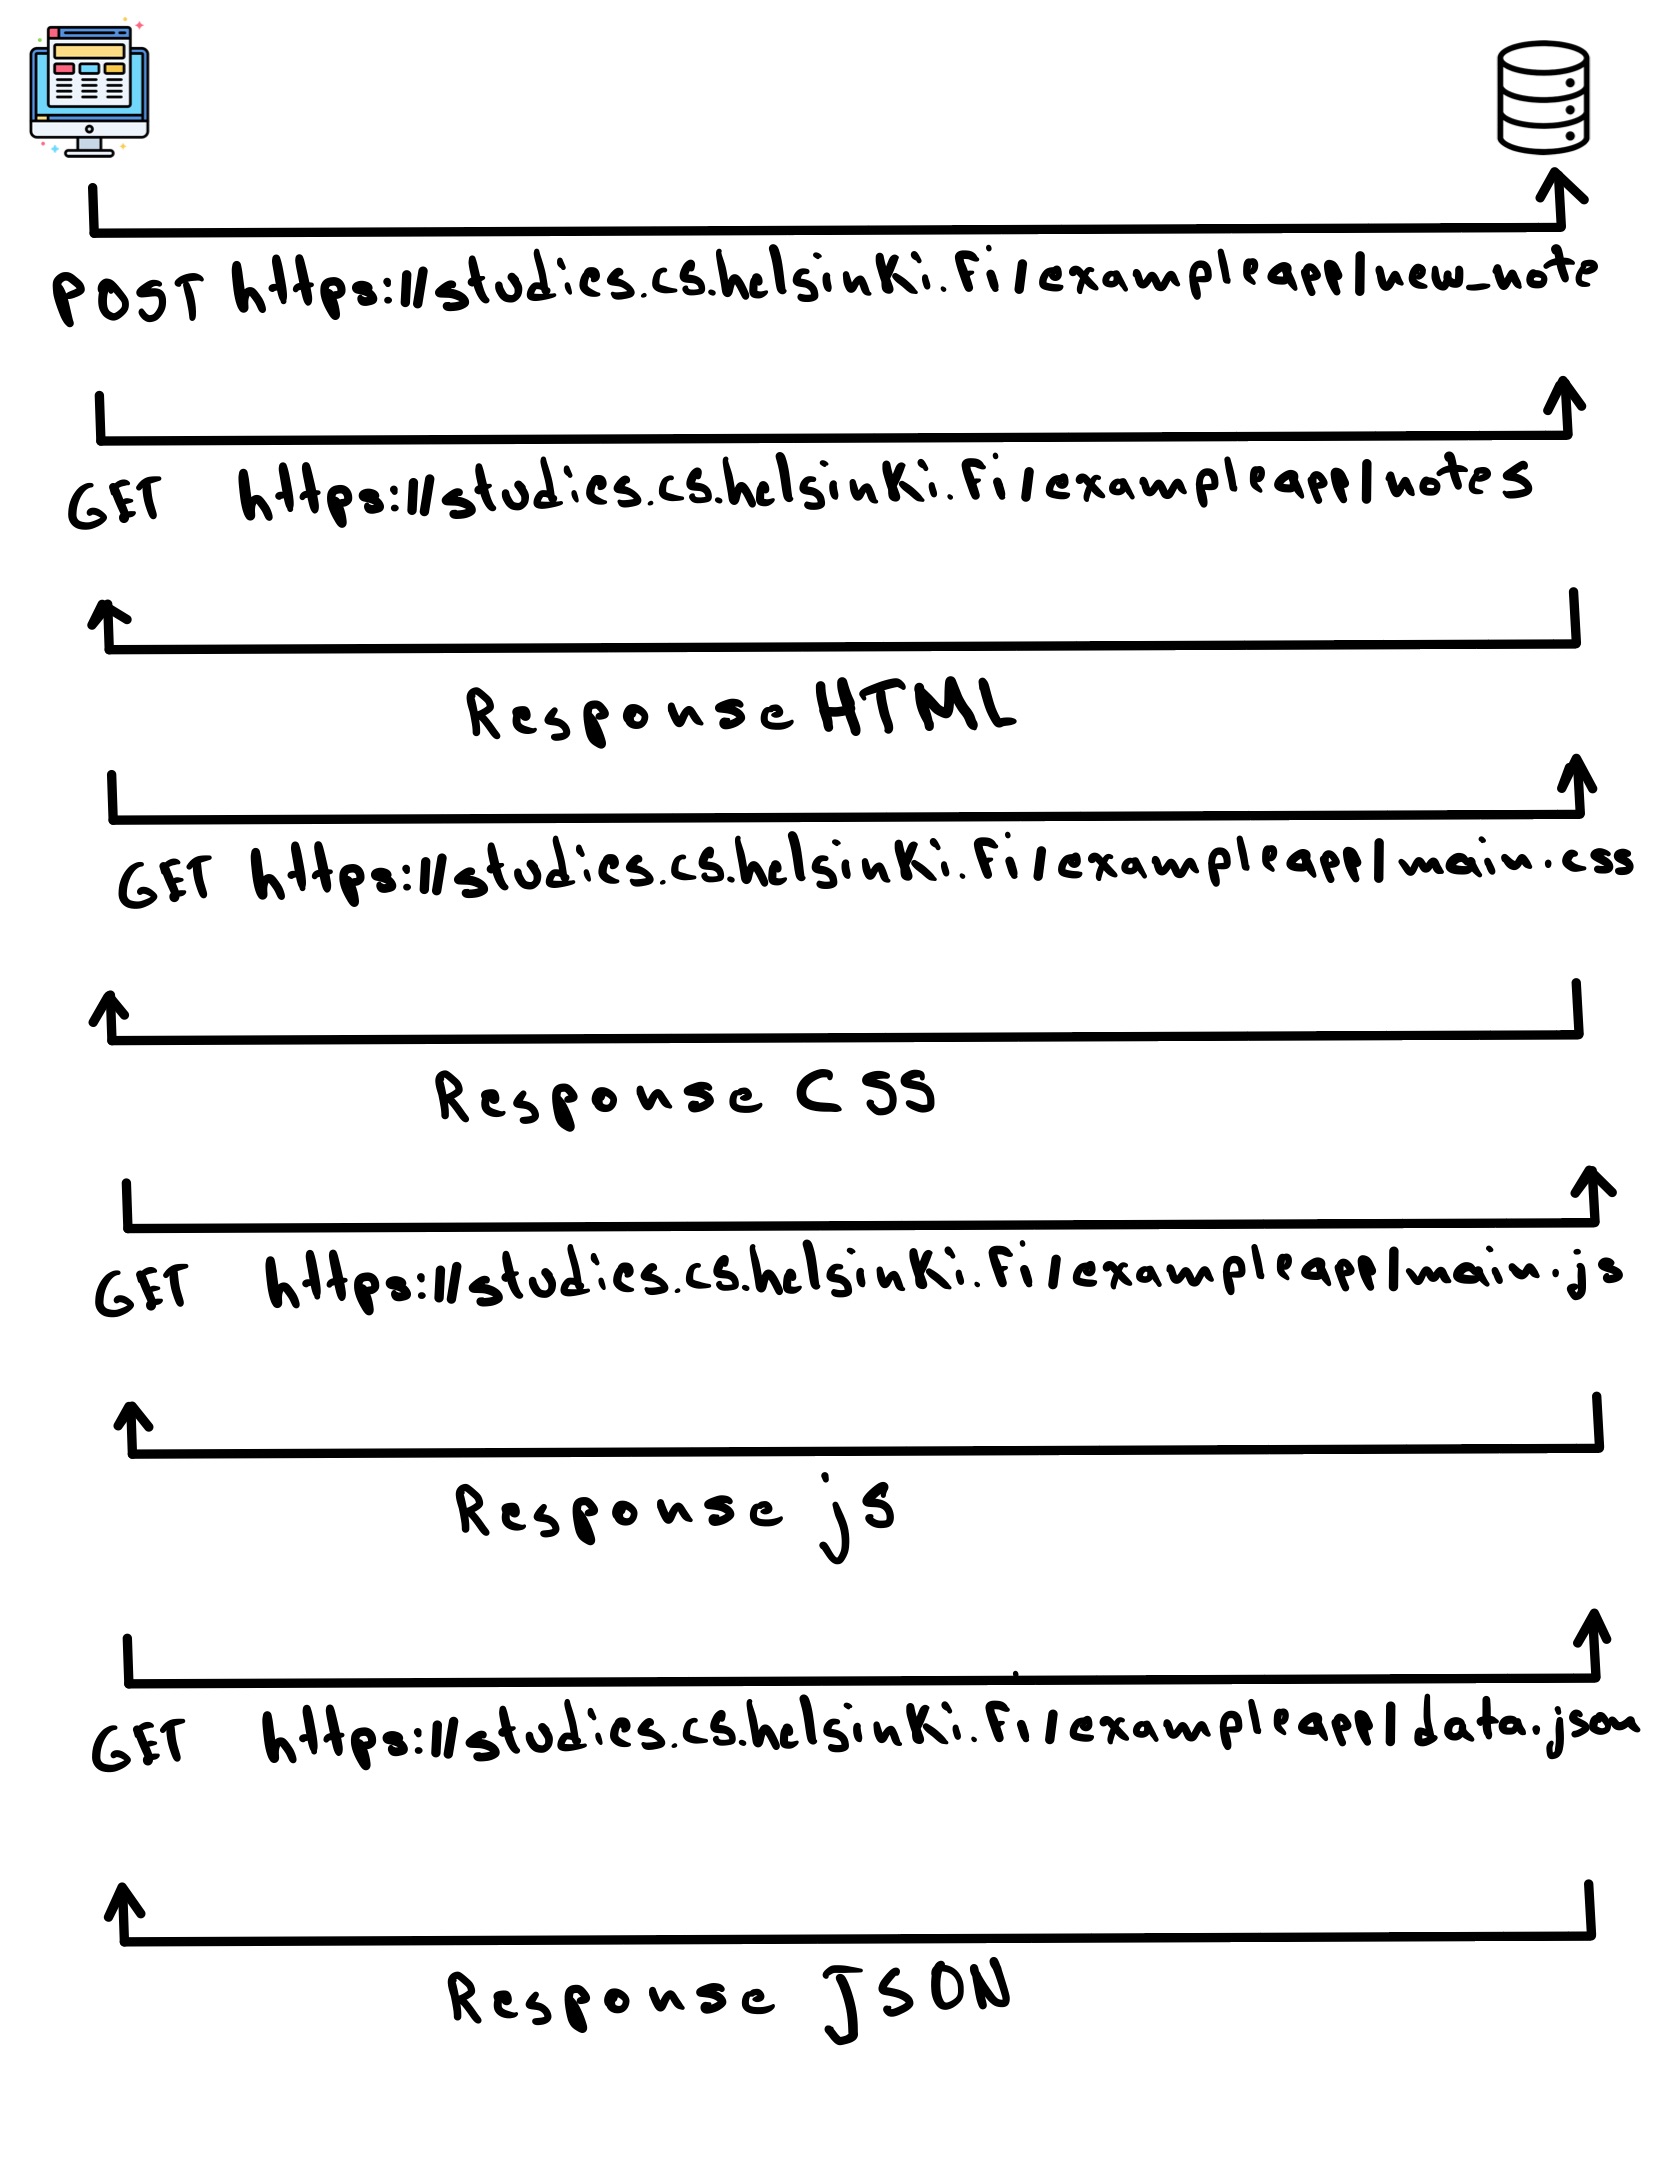 POST https://studies.cs.helsinki.fi/exampleapp/new_note
GET https://studies.cs.helsinki.fi/exampleapp/notes
Response HTML
GET https://studies.cs.helsinki.fi/exampleapp/main.css
Response CSS
GET https://studies.cs.helsinki.fi/exampleapp/main.js
Response js
GET https://studies.cs.helsinki.fi/exampleapp/data.json
Response JSON